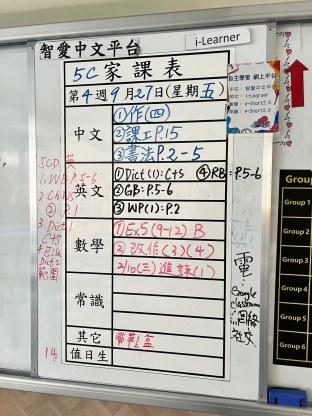 智愛中文平台
i-Learner
5C 家課表
第4週9月27日(星期五)
自主學習 網上平台
中文
①作(四)
②課工P.15
③書法P.2-5
英文
①Dict(1): Cts ④RB: P.5-6
②GB: P.5-6
③WP(1): P.2
數學
①Ex5(9-12) B
②改作(3)(4)
2/10(三)進評(1)
常識
其它
帶鞋盒
值日生
14
5CD 英
1. WB: P.5-6
2. Ch.15
P.1
3. Dict 1
Cts
Dict 2
範圍
電:
Google
Classroom
網絡
社交
Group
Group 1
Group 2
Group 3
Group 4
Group 5
Group 6